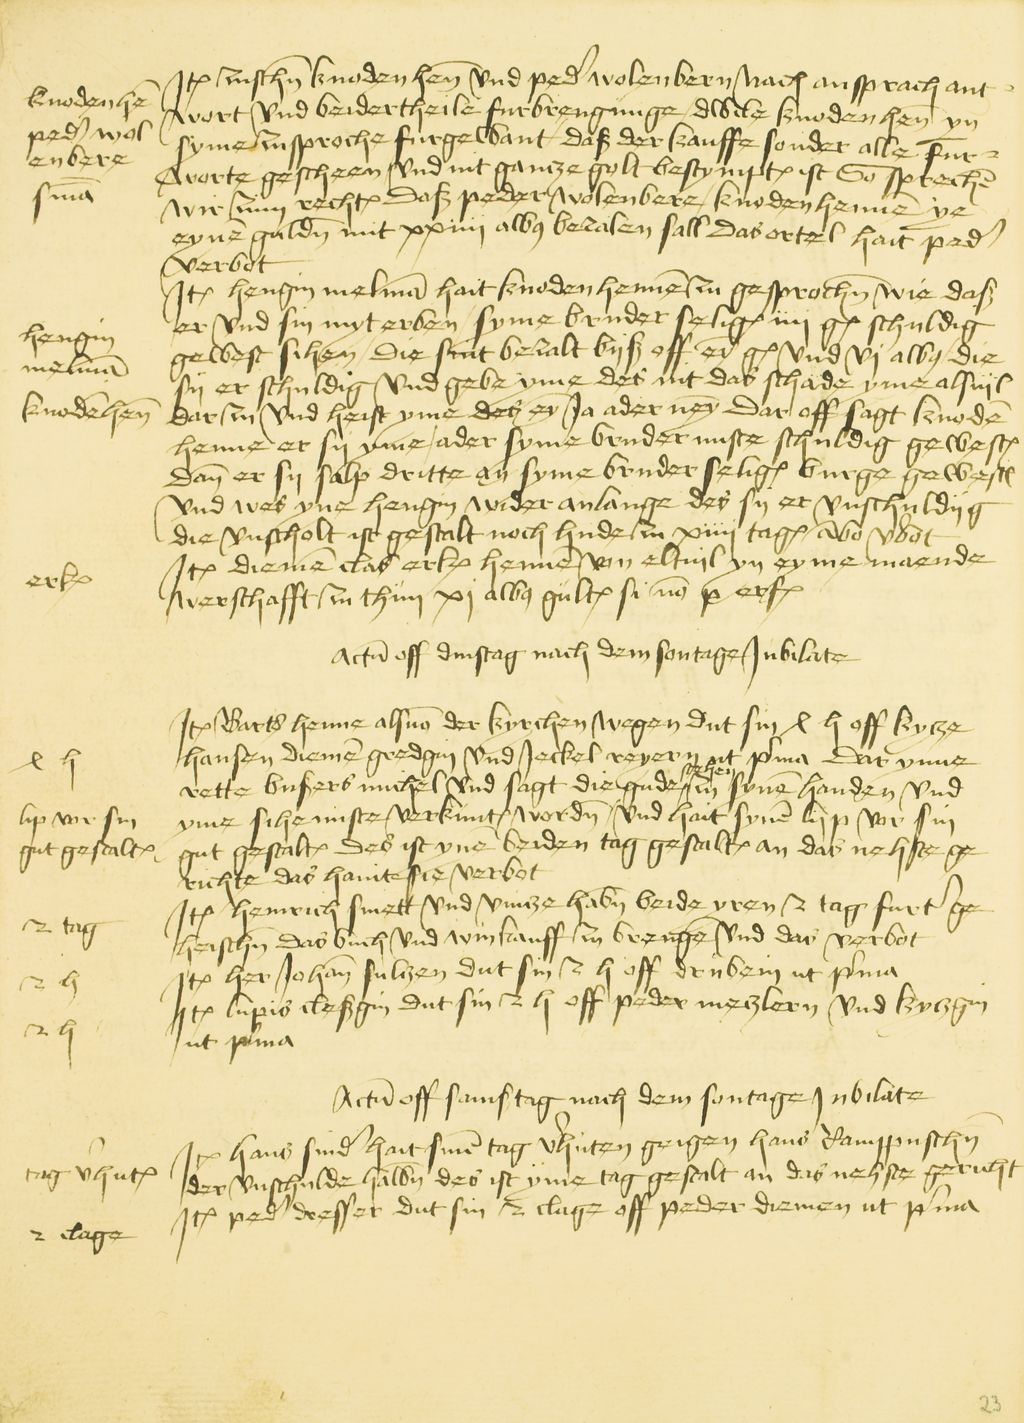 knodenhē
pedˀ wol
enbere
sīnā
Itē zuschn knoden hen̄ vnd pedˀ wolenbern nach ansprach ant-
wort vnd beidertheile furbrengunge dwile knodenhen̄ yn
syme zusproche furgewant daß der kauffe sonder alle fur-
worte gescheen vnd nit gancze golt bestymptē ist So sprechē
wir zum rechtē daß peder wolenbere knodenhenne ye
eynē guldn mit xxiiij albꝯ bezalen sall das ortel hait pedˀ
verbot
hengin
melmā
knodēhen̄
Itē hengin melmā hait knodenhenne zu gesprochn wie daß
er vnd sin myt erben syme bruder seligē iiij gē schuldig
gewest sihen die sint bezalt byß off eȳ gē vnd vj albꝯ die
sij er schuldig vnd gebe yme des nit das schade yme alsuil
dar zu vnd heist yme des eȳ Ja ader neȳ Dar off sagt knodē
henne er sij yme ader syme bruder nuste schuldig gewestē
dan̄ er sij salp dritte an syme bruder seligē burge gewest
vnd wes yne hengin wider anlange des sij er vnschuldijg
die vnscholt ist gestalt noch hude zu xiiij tagē abo vˀbot
erkē
Itē diemē clas erkē hennē von eltuil yn eyme maende
werschafft zu thun xj albꝯ gultē si nō p erfē
Actū off dinstag nach dem sontage Jubilate
x h
lip vor sin
gut gestaltē
Itē Barts henne alsuō der kyrchen wegen dut sin x h off kycze
hansen diemē gredgin vnd Jeckel reyern ut pˀma Dar ynne
rette bußers michel vnd sagt die gude sihen in synē handen vnd
yme sihe nuste verkuntē wordn vnd hait synē lijp vor sin
gut gestaltē Des ist ynē beiden tag gestaltē an das nehste ge
richte das hant sie verbot
2 tag
Itē heinrich snett vnd vincze habn beide yren 2 tag furtˀ ge
heischn das buch vnd winkauff zu brengē vnd das verbot
2 h
Itē her Johan̄ sulczen dut sin 2 h off drubein ut pˀma
2 h
Itē lupis cleßgin dut sin 2 h off peder meczlern vnd kyczgin
ut pˀma
Actū off samstag nach dem sontage Jubilate
tag vˀhutē
Itē hans sindˀ hait sinē tag vˀhuten geigen hans Rampuschn
der vnschulde halbn des ist yme tag gestalt an das nehste gericht
2 clage
Itē pedˀ dresser dut sin 2 clage off peder diemen ut pˀma
23